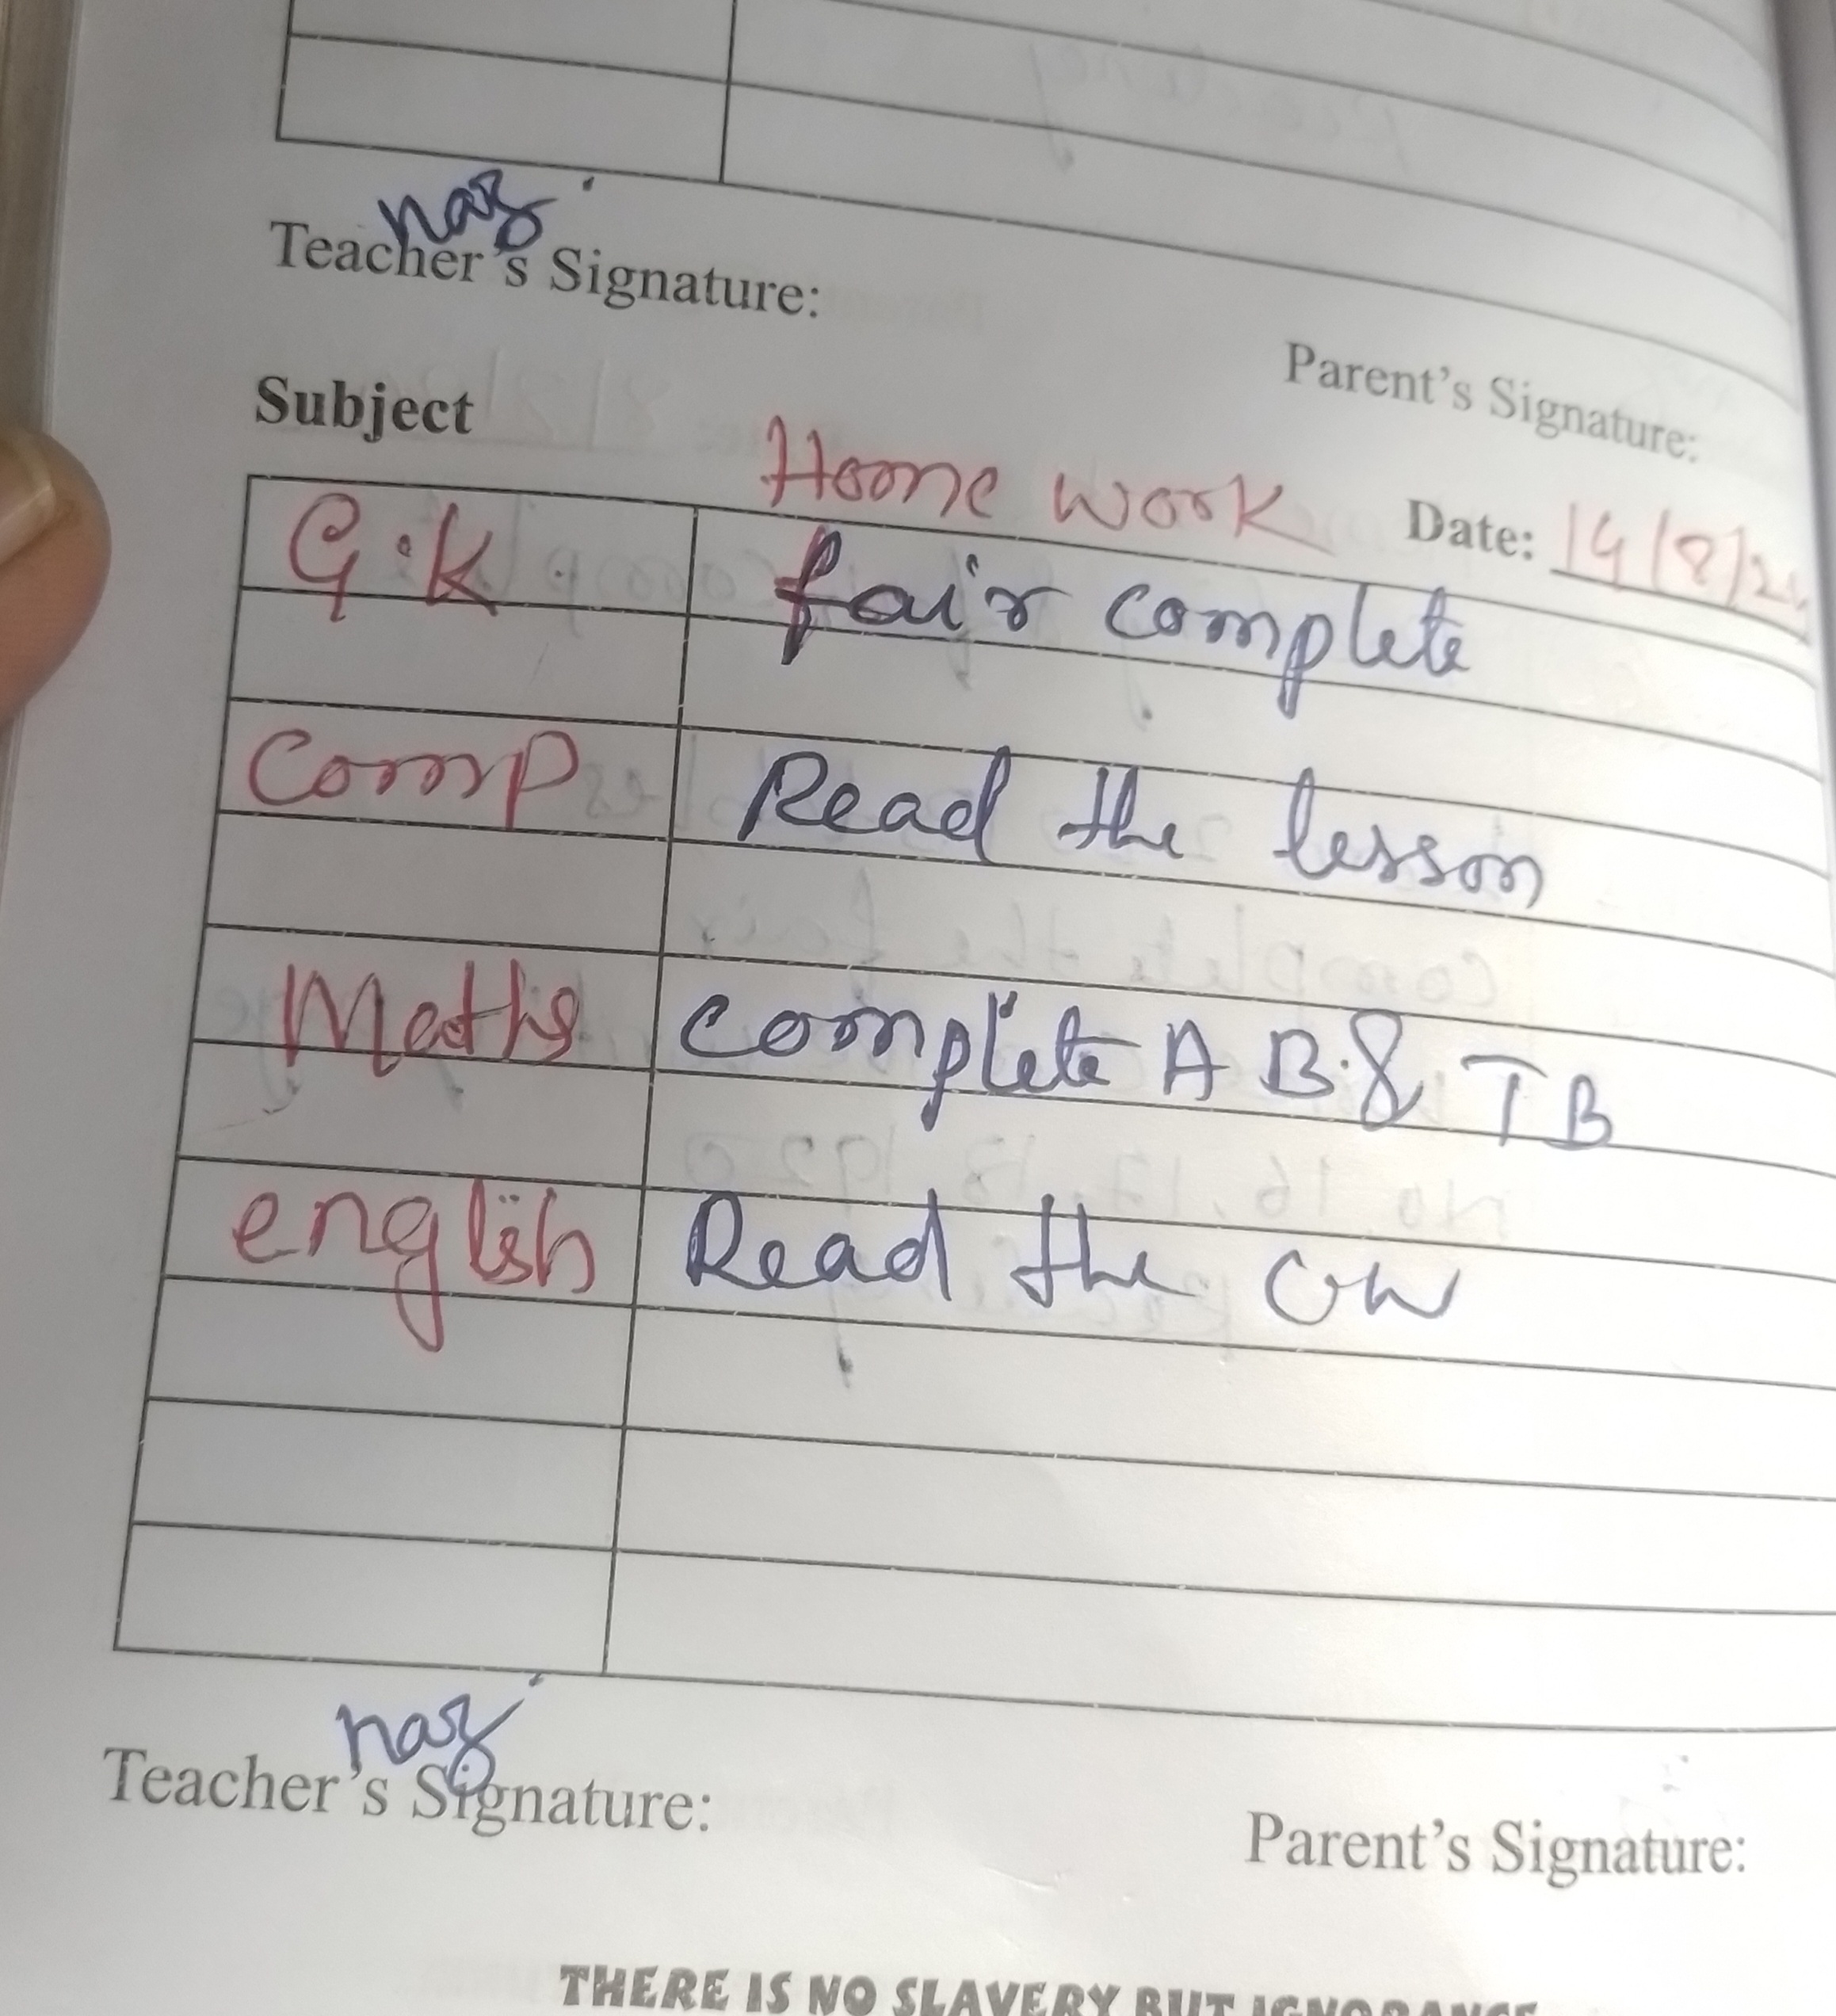 naz
Teacher's Signature:
Parent's Signature:
Subject
Home work
Date: 14/8/24
G.K fair complete
Comp Read the lesson
Maths complete A B & T B
english Read the CW
naz
Teacher's Signature:
Parent's Signature:
THERE IS NO SLAVERY BUT IGNORANCE